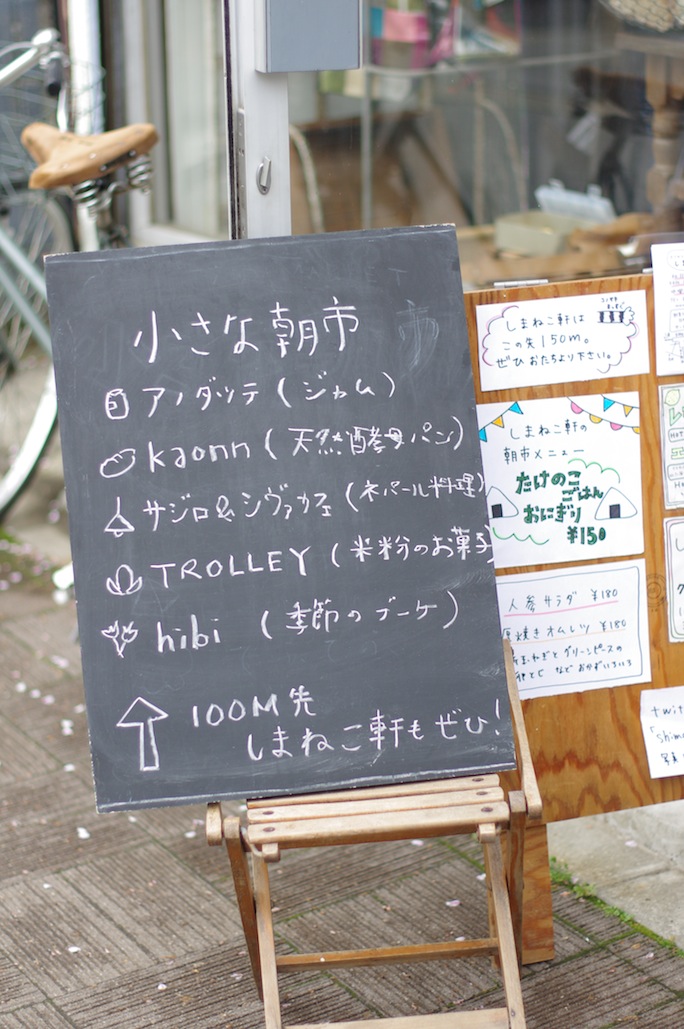 小さな朝市
アノダッテ(ジャム)
kaonn(天然酵母パン)
サジロ&シヴァカフェ(ネパール料理)
TROLLEY(米粉のお菓子)
hibi(季節のブーケ)
100M先
しまねこ軒もぜひ!
しまねこ軒は
この先150m。
ぜひおたちより下さい。
しまねこ軒の
朝市メニュー
たけのこ
ごはん
おにぎり
¥150
人参サラダ ¥180
焼きオムレツ ¥180
ねぎとグリーンピースの
などおかずいろいろ
twit
「shim
写真